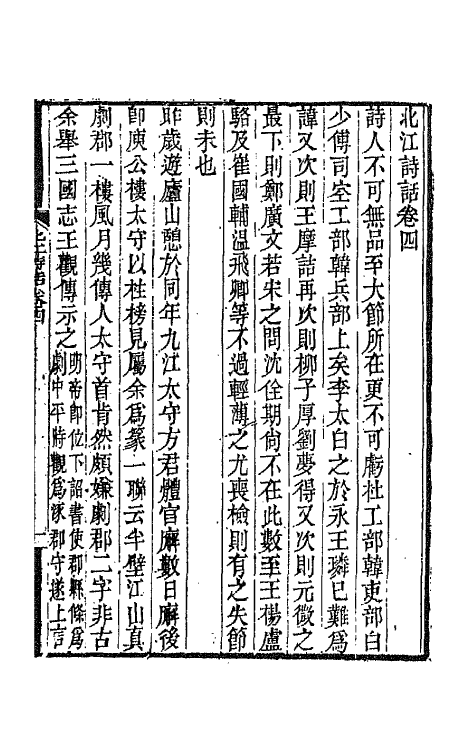 北江詩話卷四
詩人不可無品至大節所在更不可虧杜工部韓吏部白
少傅司空工部韓兵部上矣李太白之於永王璘已難爲
諱又次則王摩詰再次則柳子厚劉夢得又次則元微之
最下則鄭廣文若宋之問沈佺期尙不在此數至王楊盧
駱及崔國輔溫飛卿等不過輕薄之尤喪檢則有之失節
則未也
昨歲遊廬山憩於同年九江太守方君體官廨數日廨後
卽庾公樓太守以柱榜見屬余爲篆一聯云半壁江山真
劇郡一樓風月幾傳人太守首肯然頗嫌劇郡二字非古
余舉三國志王觀傳示之明帝卽位下詔書使郡縣條爲
劇中平時觀爲涿郡守遂上言
北江詩話卷四
一